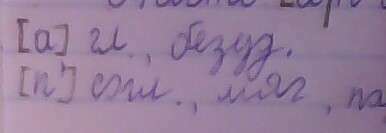 [а] гл., безуд.
[п'] согл., мяг, па